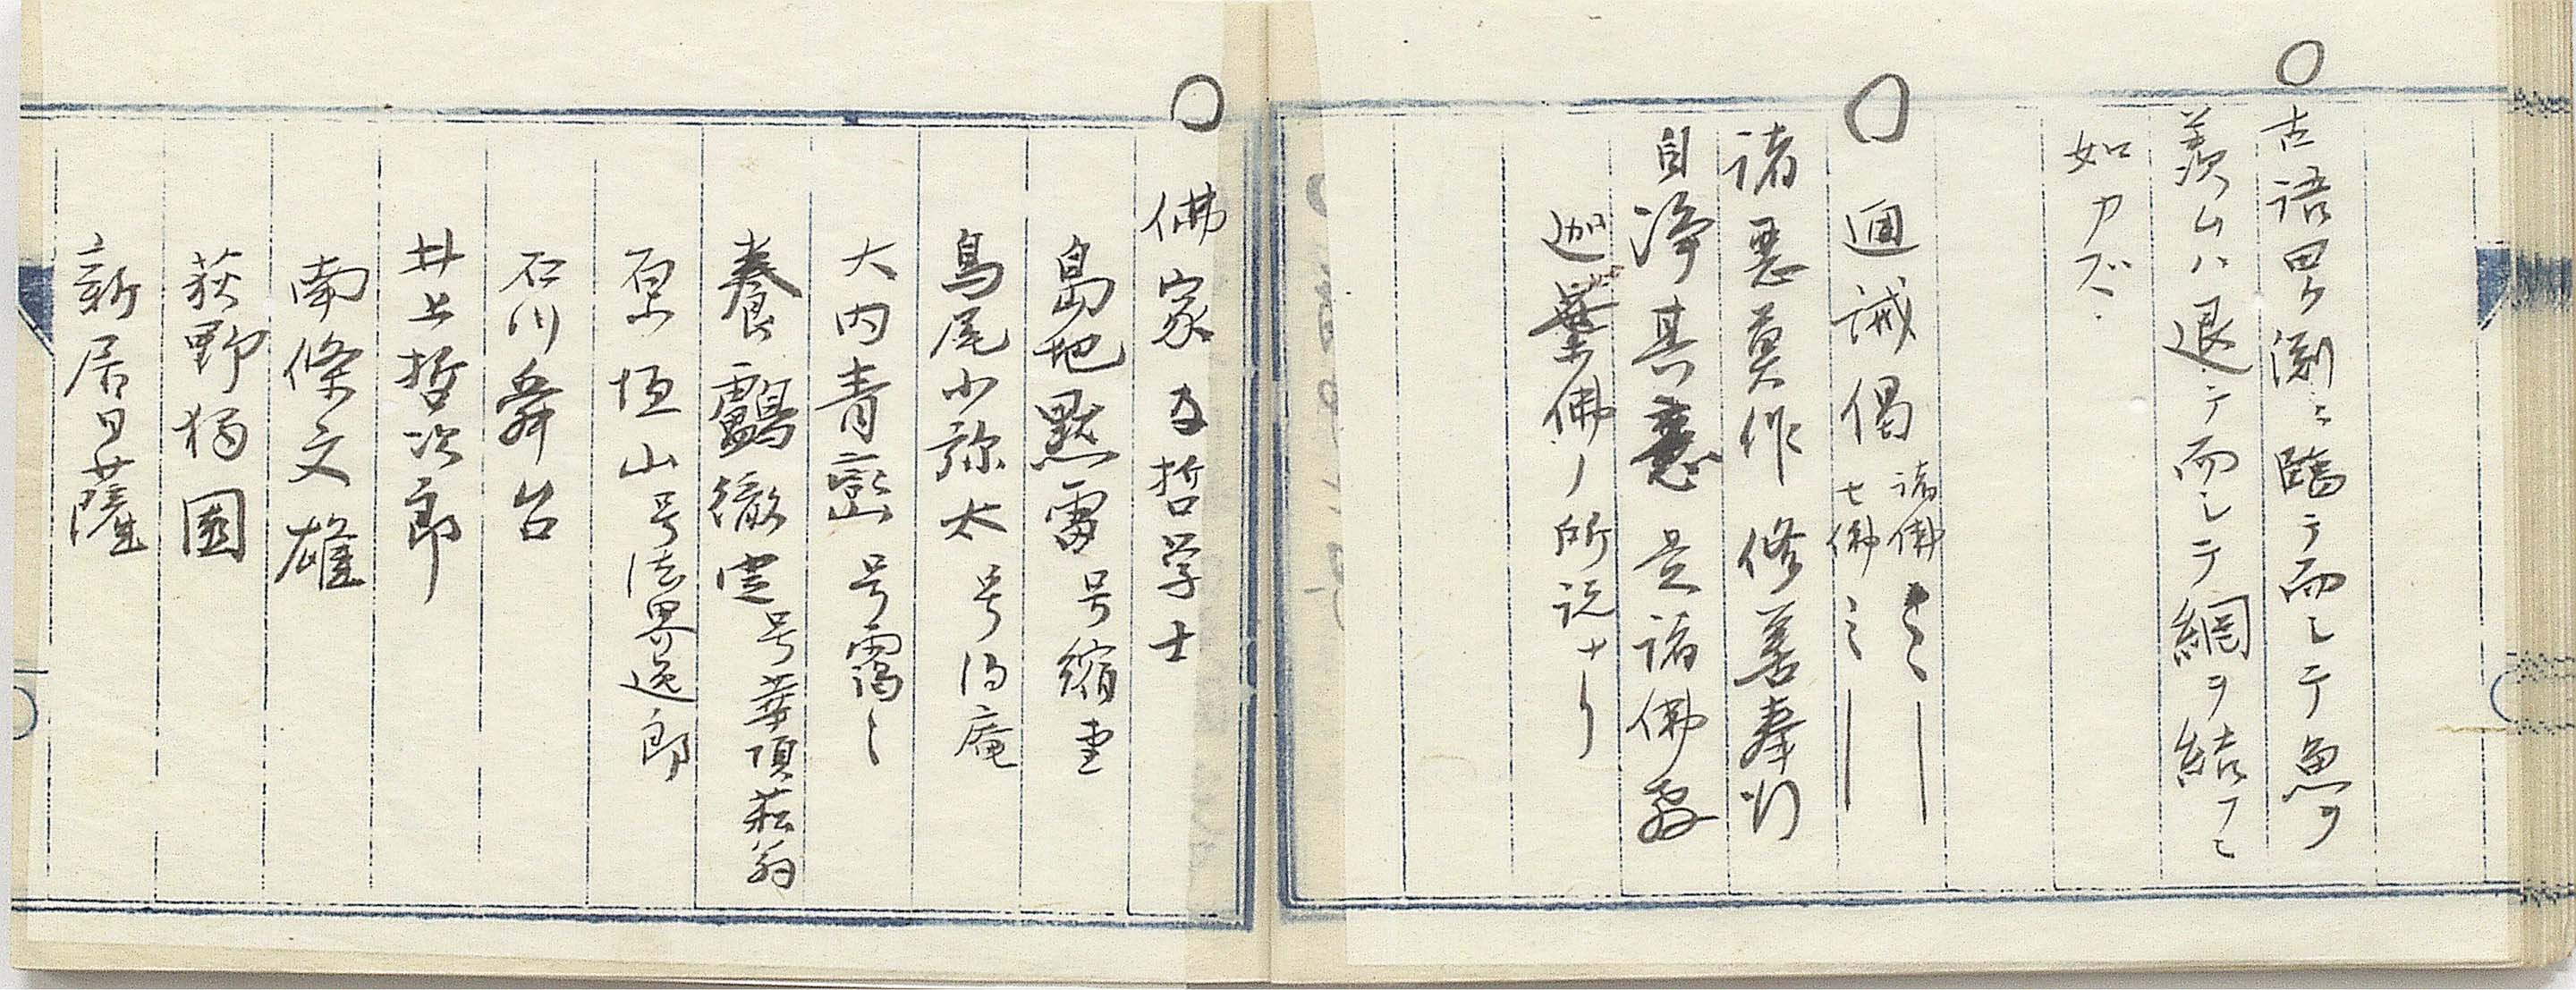 ○古語曰ク渕ニ臨テ而シテ魚ヲ
羨ムハ退テ而シテ網ヲ結フニ
如カズ
○通誡偈 諸佛〻〡
七佛〻〡
諸悪莫作 修善奉行
自浄其意 是諸佛教
迦葉佛ノ所説ナリ
○佛家及哲学士
島地黙雷 号縮堂
鳥尾小弥太 号得庵
大内青巒 号靄〻
養鸕徹定 号華頂菘翁
原坦山 号法界逸郎
石川舜台
井上哲次郎
南條文雄
荻野獨園
新居日薩